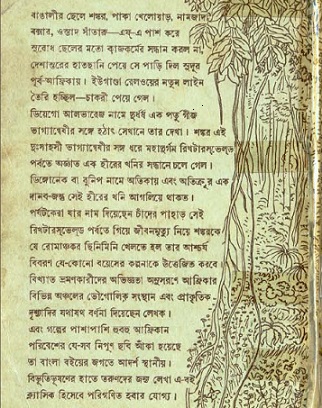 বাঙালীর ছেলে শঙ্কর, পাকা খেলোয়াড়, নামজাদা
বক্সার, ওস্তাদ সাঁতারু—এফ-এ পাশ করে
সুবোধ ছেলের মতো কাজকর্মের সন্ধান করল না,
দেশান্তরের হাতছানি পেয়ে সে পাড়ি দিল সুদূর
পূর্ব-আফ্রিকায়। ইউগাণ্ডা রেলওয়ের নতুন লাইন
তৈরি হচ্ছিল—চাকরী পেয়ে গেল।
ডিয়েগো আলভারেজ নামে দুর্ধর্ষ এক পর্তুগীজ
ভাগ্যান্বেষীর সঙ্গে হঠাৎ সেখানে তার দেখা। শঙ্কর এই
দুঃসাহসী ভাগ্যান্বেষীর সঙ্গ ধরে মহাদুর্গম রিখটারস্‌ভেল্ড
পর্বতে অজ্ঞাত এক হীরের খনির সন্ধানে চলে গেল।
ডিঙ্গোনেক বা বুনিপ নামে অতিকায় এবং অতিক্রূর এক
দানব-জন্তু সেই হীরের খনি আগলিয়ে থাকত।
পর্যটকেরা যার নাম দিয়েছেন চাঁদের পাহাড় সেই
রিখটারস্‌ভেল্ড পর্বতে গিয়ে জীবনমৃত্যু নিয়ে শঙ্করকে
যে রোমাঞ্চকর ছিনিমিনি খেলতে হল তার আশ্চর্য
বিবরণ যে-কোনো বয়েসের কল্পনাকে উত্তেজিত করবে।
বিখ্যাত ভ্রমণকারীদের অভিজ্ঞতা অনুসরণে আফ্রিকার
বিভিন্ন অঞ্চলের ভৌগোলিক সংস্থান এবং প্রাকৃতিক-
দৃশ্যাদির যথাযথ বর্ণনা দিয়েছেন লেখক।
এবং গল্পের পাশাপাশি হুবহু আফ্রিকান
পরিবেশের যে-সব নিপুণ ছবি আঁকা হয়েছে
তা বাংলা বইয়ের জগতে আদর্শ স্থানীয়।
বিভূতিভূষণের হাতে তরুণদের জন্য লেখা এ-বই
ক্লাসিক হিসেবে পরিগণিত হবার যোগ্য।